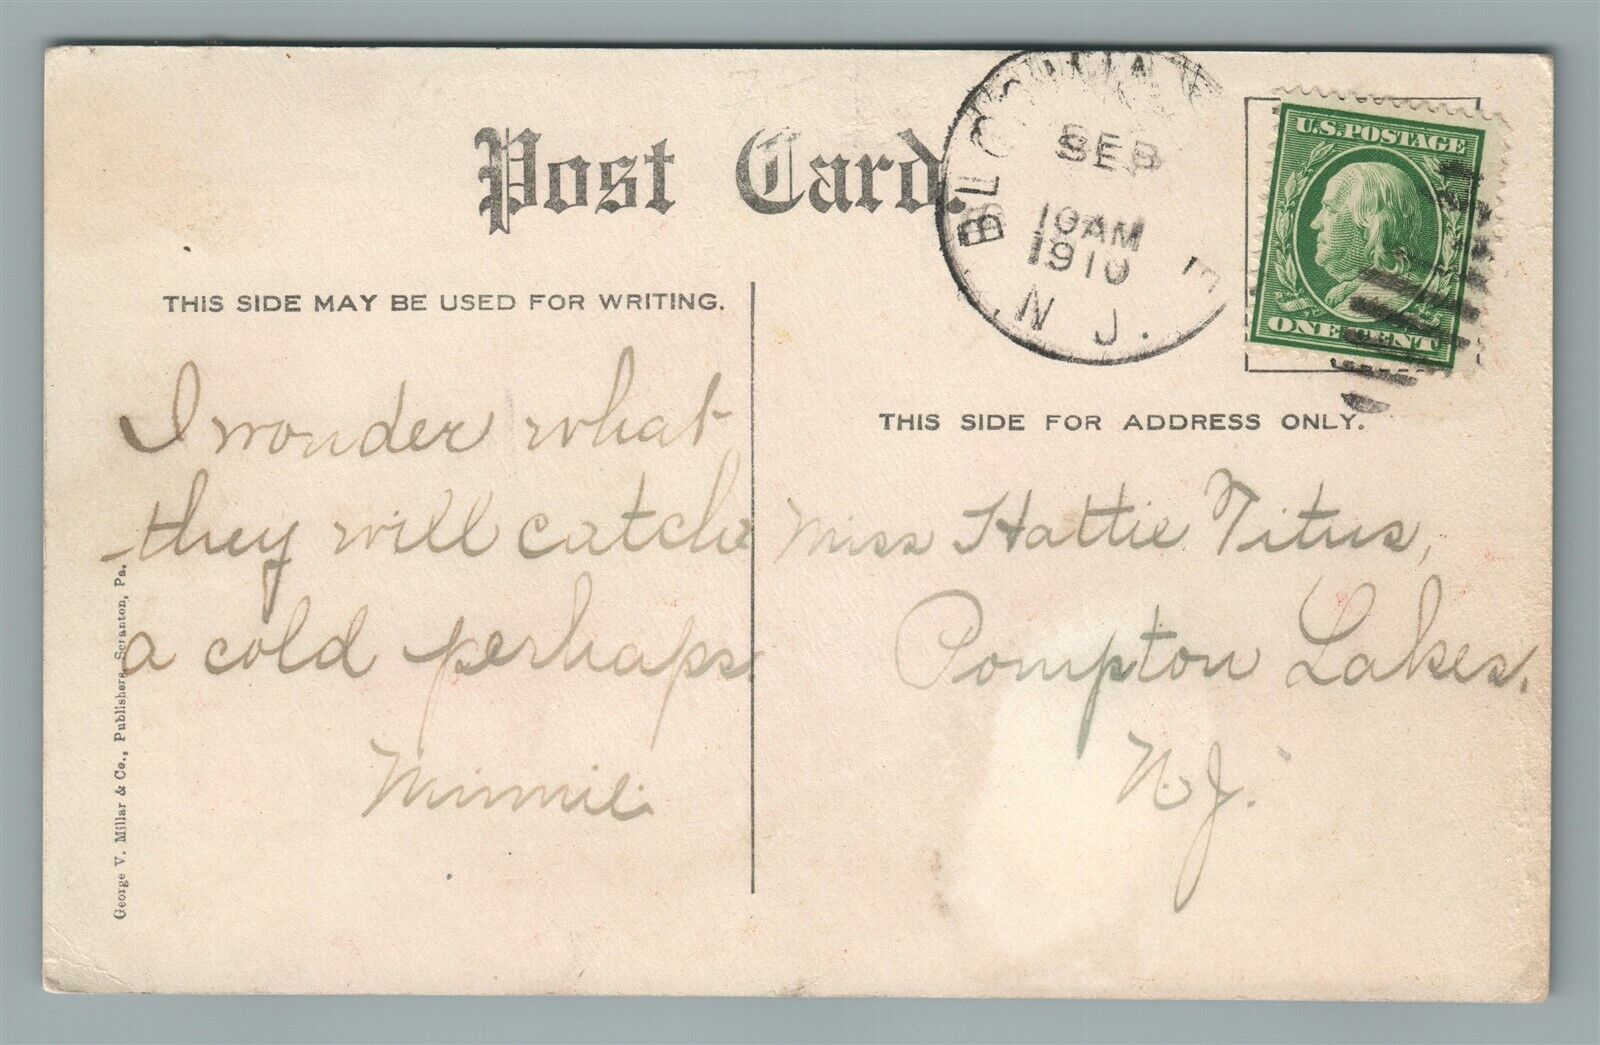 Post Card.
SEP
10 AM
1910
N. J.
U.S. POSTAGE
ONE CENT
THIS SIDE MAY BE USED FOR WRITING.
THIS SIDE FOR ADDRESS ONLY.
I wonder what
they will catch
a cold perhaps
Minnie.
Miss Hattie Titus,
Pompton Lakes.
N.J.
George V. Millar & Co., Publishers, Scranton, Pa.